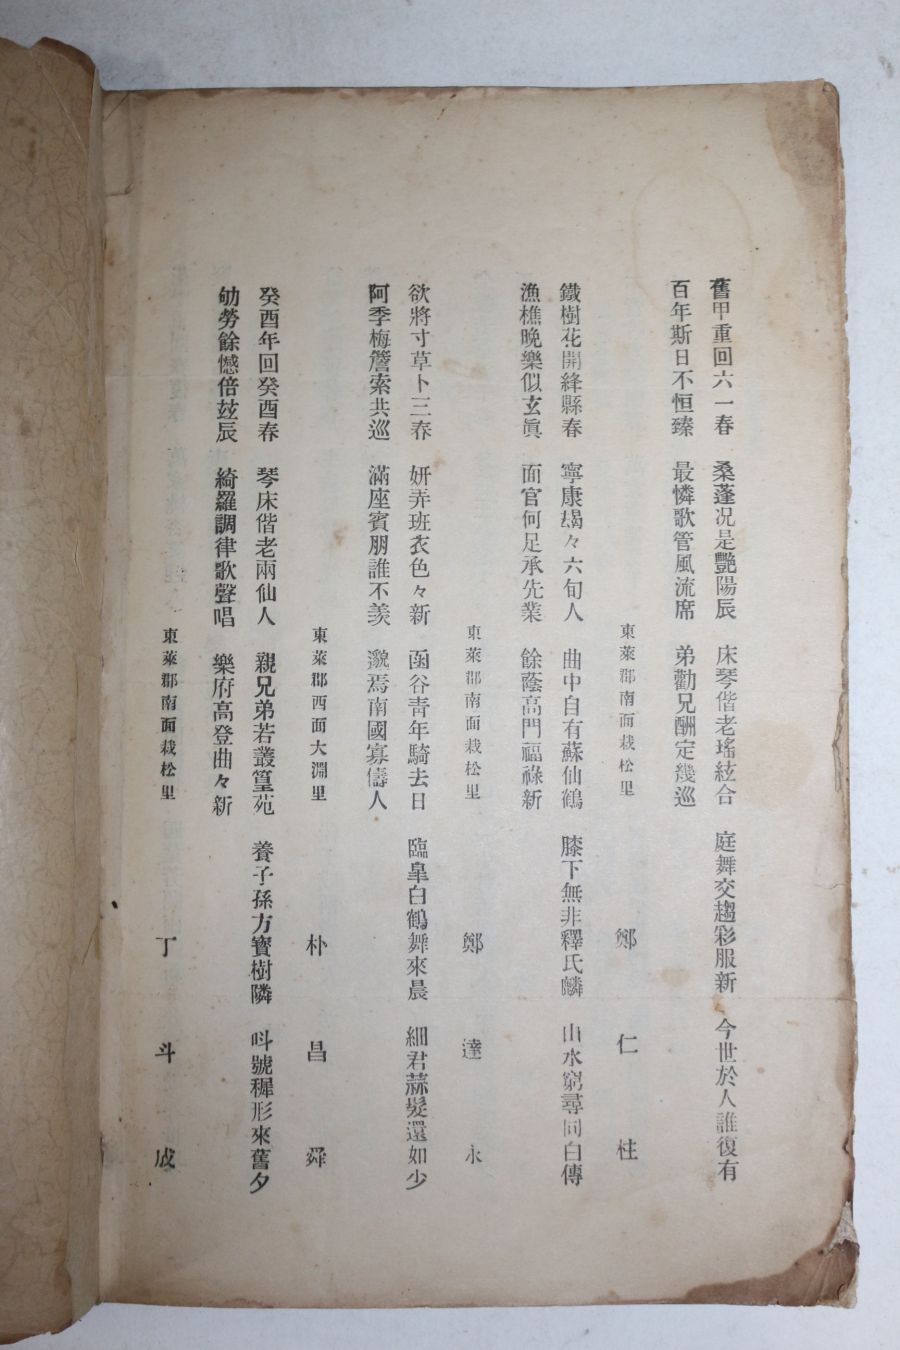 舊甲重回六一春　桑蓬况是艷陽辰　床琴偕老瑤絃合　庭舞交趨彩服新　今世於人誰復有
百年斯日不恒臻　最憐歌管風流席　弟勸兄酬定幾巡
東萊郡南面栽松里　鄭仁柱
鐵樹花開絳縣春　寧康曷々六旬人　曲中自有蘇仙鶴　膝下無非釋氏麟　山水窮尋同白傅
漁樵晚樂似玄眞　面官何足承先業　餘蔭高門福祿新
東萊郡南面栽松里　鄭達永
欲將寸草卜三春　姸弄班衣色々新　函谷靑年騎去日　臨皐白鶴舞來晨　細君蒜髮還如少
阿季梅簷索共巡　滿座賓朋誰不羨　邈焉南國寡儔人
東萊郡西面大淵里　朴昌舜
癸酉年回癸酉春　琴床偕老兩仙人　親兄弟若叢篁苑　養子孫方寶樹隣　呌號穉形來舊夕
劬勞餘憾倍玆辰　綺羅調律歌聲唱　樂府高登曲々新
東萊郡南面栽松里　丁斗成